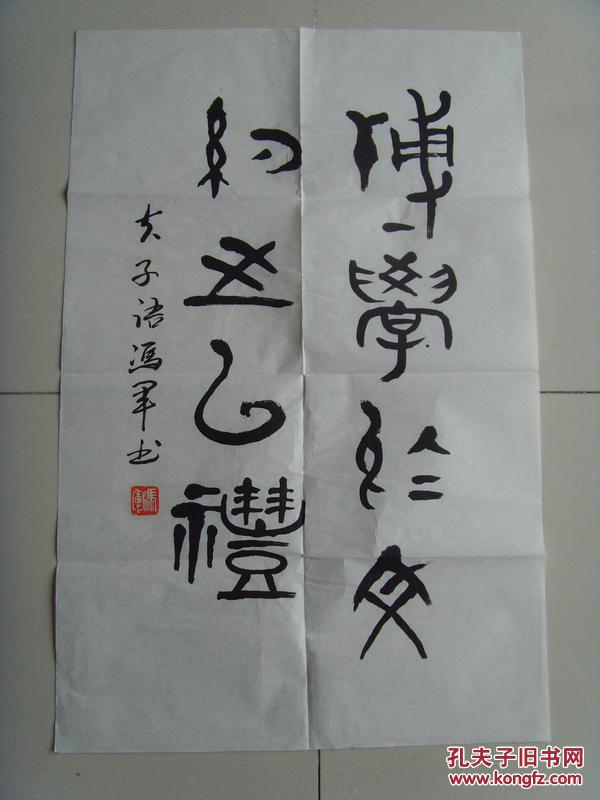 博學於文
約之以禮
夫子语冯军书
孔夫子旧书网
www.kongfz.com